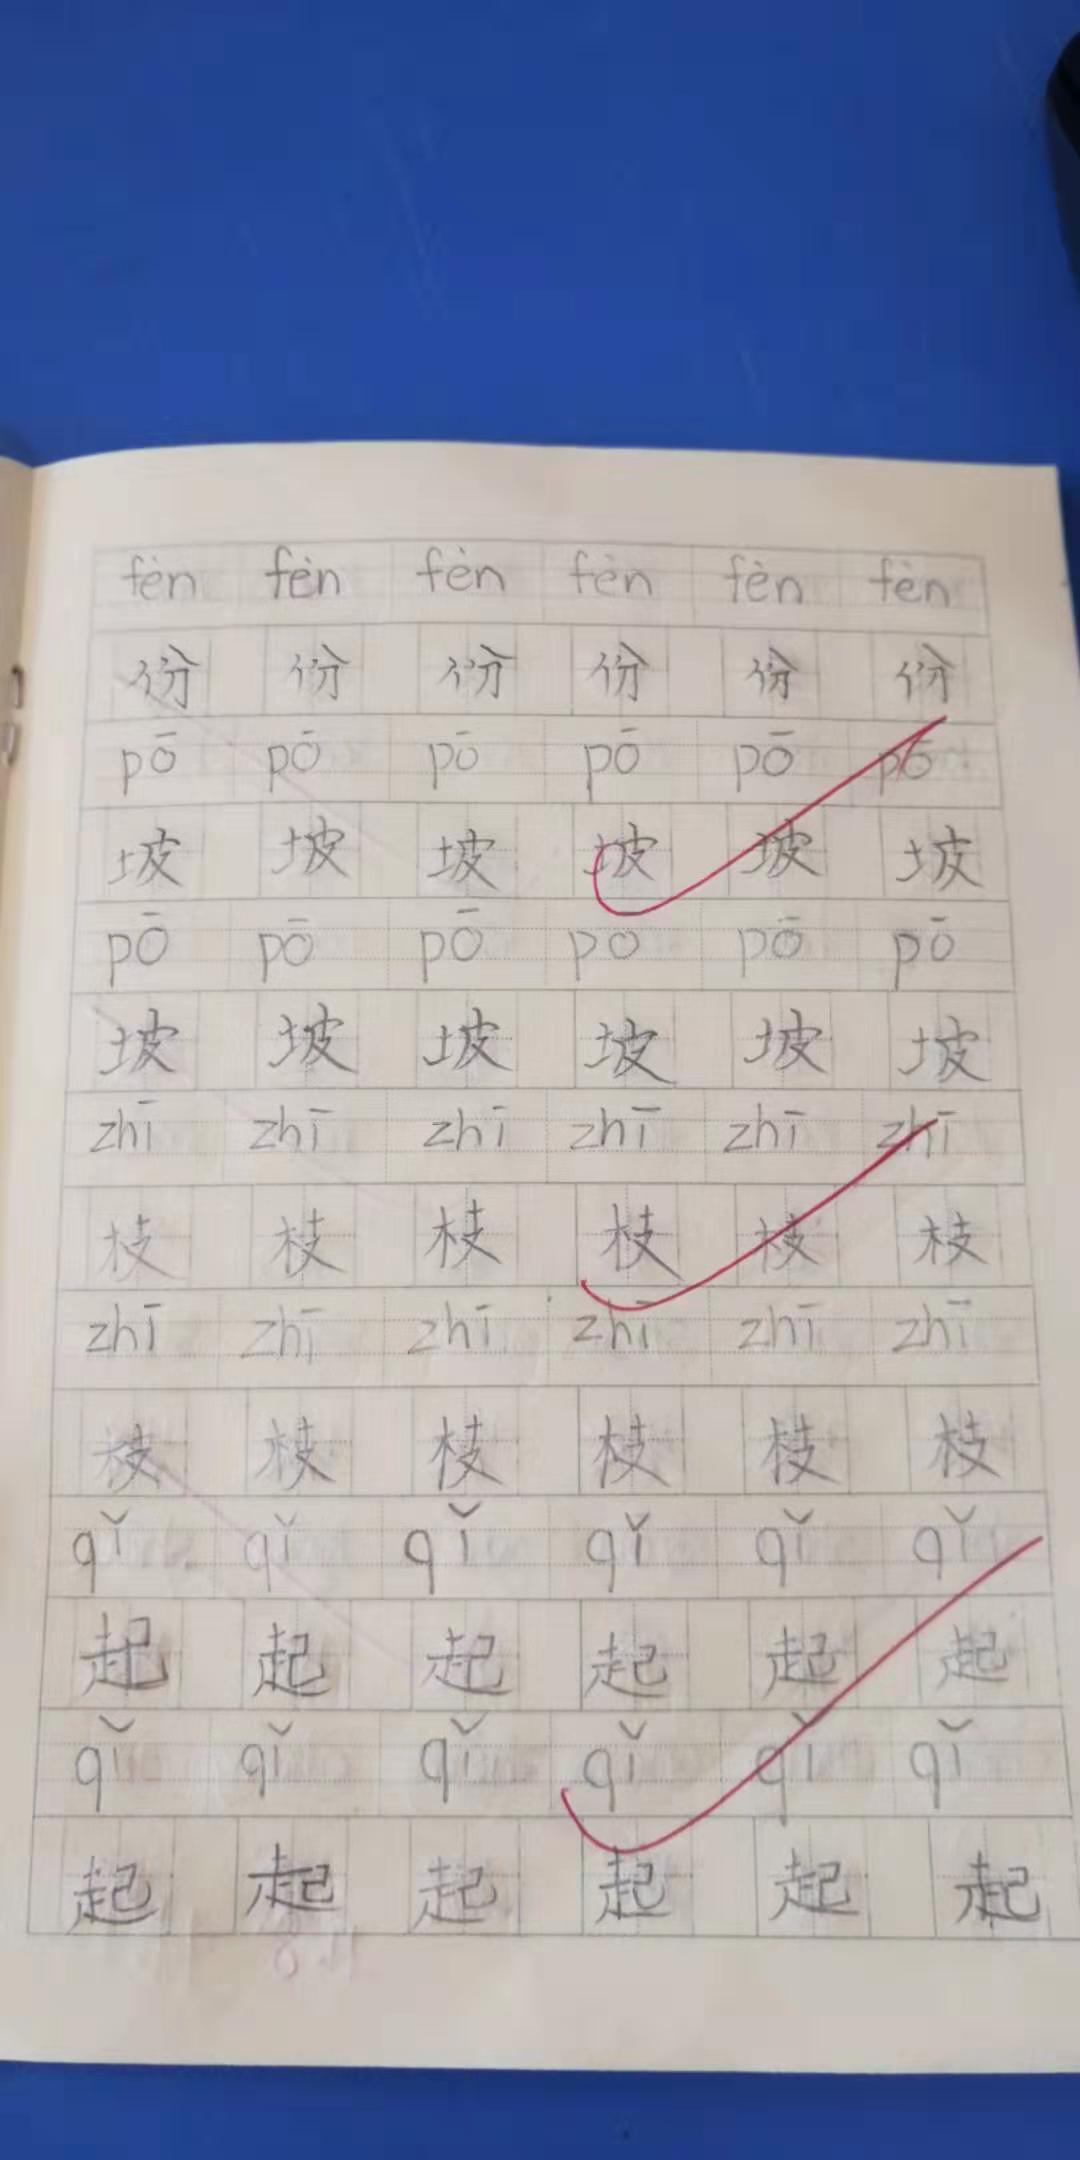 fèn fèn fèn fèn fèn fèn
份 份 份 份 份 份
pō pō pō pō pō pō
坡 坡 坡 坡 坡 坡
pō pō pō po pō pō
坡 坡 坡 坡 坡 坡
zhī zhī zhī zhī zhī zhī
枝 枝 枝 枝 枝 枝
zhī zhī zhī zhī zhī zhī
枝 枝 枝 枝 枝 枝
qǐ qǐ qǐ qǐ qǐ qǐ
起 起 起 起 起 起
qǐ qǐ qǐ qǐ qǐ qǐ
起 起 起 起 起 起